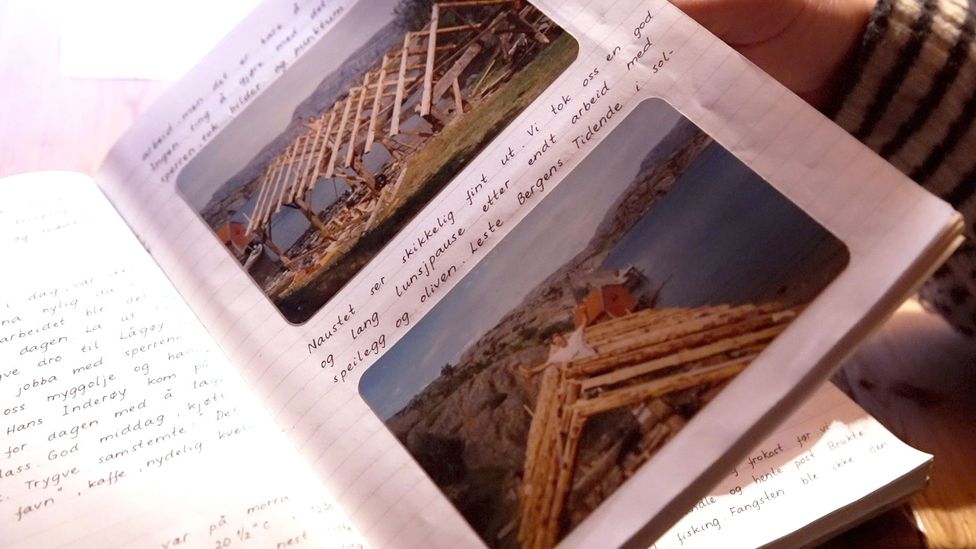 og
i dag, var
nylig da
arbeidet ble det
dagen. La ut
dro til Lågøy
jobba med sperren
oss myggolje og
Hans Inderøy kom på
for dagen med å
God middag, kjøtt
Trygve samstemte! Det
favn", kaffe, nydelig
var på morra
20 ½ °C
nest
arbeid, men det er bare å
Ingen ting å gjøre med det.
sperren, tok bilder og punktum
Naustet ser skikkelig fint ut. Vi tok oss en god
og lang lunsjpause etter endt arbeid med
speilegg og oliven. Leste Bergens Tidende i sol-
frokost før vi
og hente post Brukte
fisking Fangsten ble ikke den